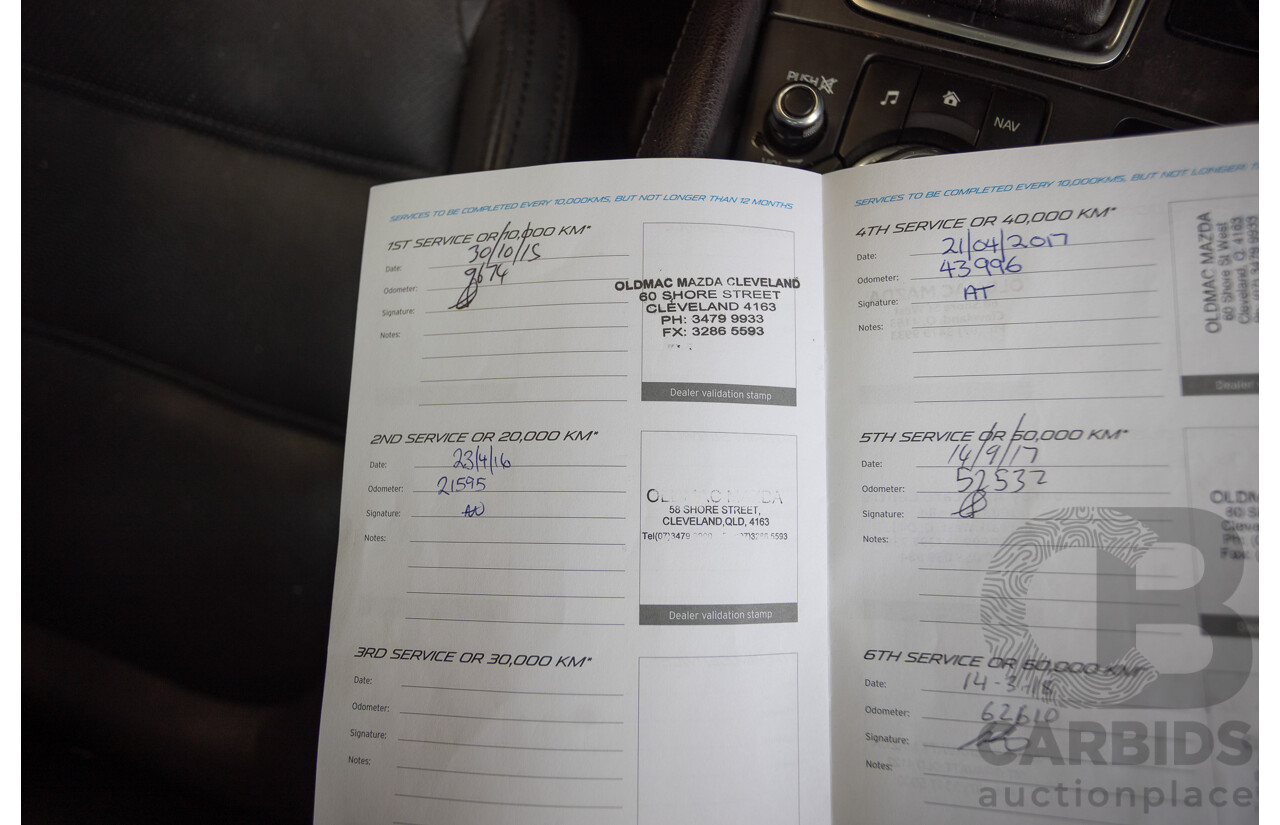 PUSH
NAV
SERVICES TO BE COMPLETED EVERY 10,000KMS, BUT NOT LONGER THAN 12 MONTHS
1ST SERVICE OR 10,000 KM*
Date: 30/10/15
Odometer: 9674
Signature:
Notes:
OLDMAC MAZDA CLEVELAND
60 SHORE STREET
CLEVELAND 4163
PH: 3479 9933
FX: 3286 5593
Dealer validation stamp
2ND SERVICE OR 20,000 KM*
Date: 23/4/16
Odometer: 21595
Signature:
Notes:
58 SHORE STREET,
CLEVELAND,QLD, 4163
Tel(07)3479
Dealer validation stamp
3RD SERVICE OR 30,000 KM*
Date:
Odometer:
Signature:
Notes:
SERVICES TO BE COMPLETED EVERY 10,000KMS, BUT NOT LONGER
4TH SERVICE OR 40,000 KM*
Date: 21/04/2017
Odometer: 43996
Signature: AT
Notes:
OLDMAC MAZDA
60 Shore St West
Cleveland, Q. 4163
Dealer
5TH SERVICE OR 50,000 KM*
Date: 14/9/17
Odometer: 52532
Signature:
Notes:
OLDMAC
6TH SERVICE OR 60,000 KM*
Date: 14-3-18
Odometer: 62610
Signature:
Notes:
CB
CARBIDS
auctionplace